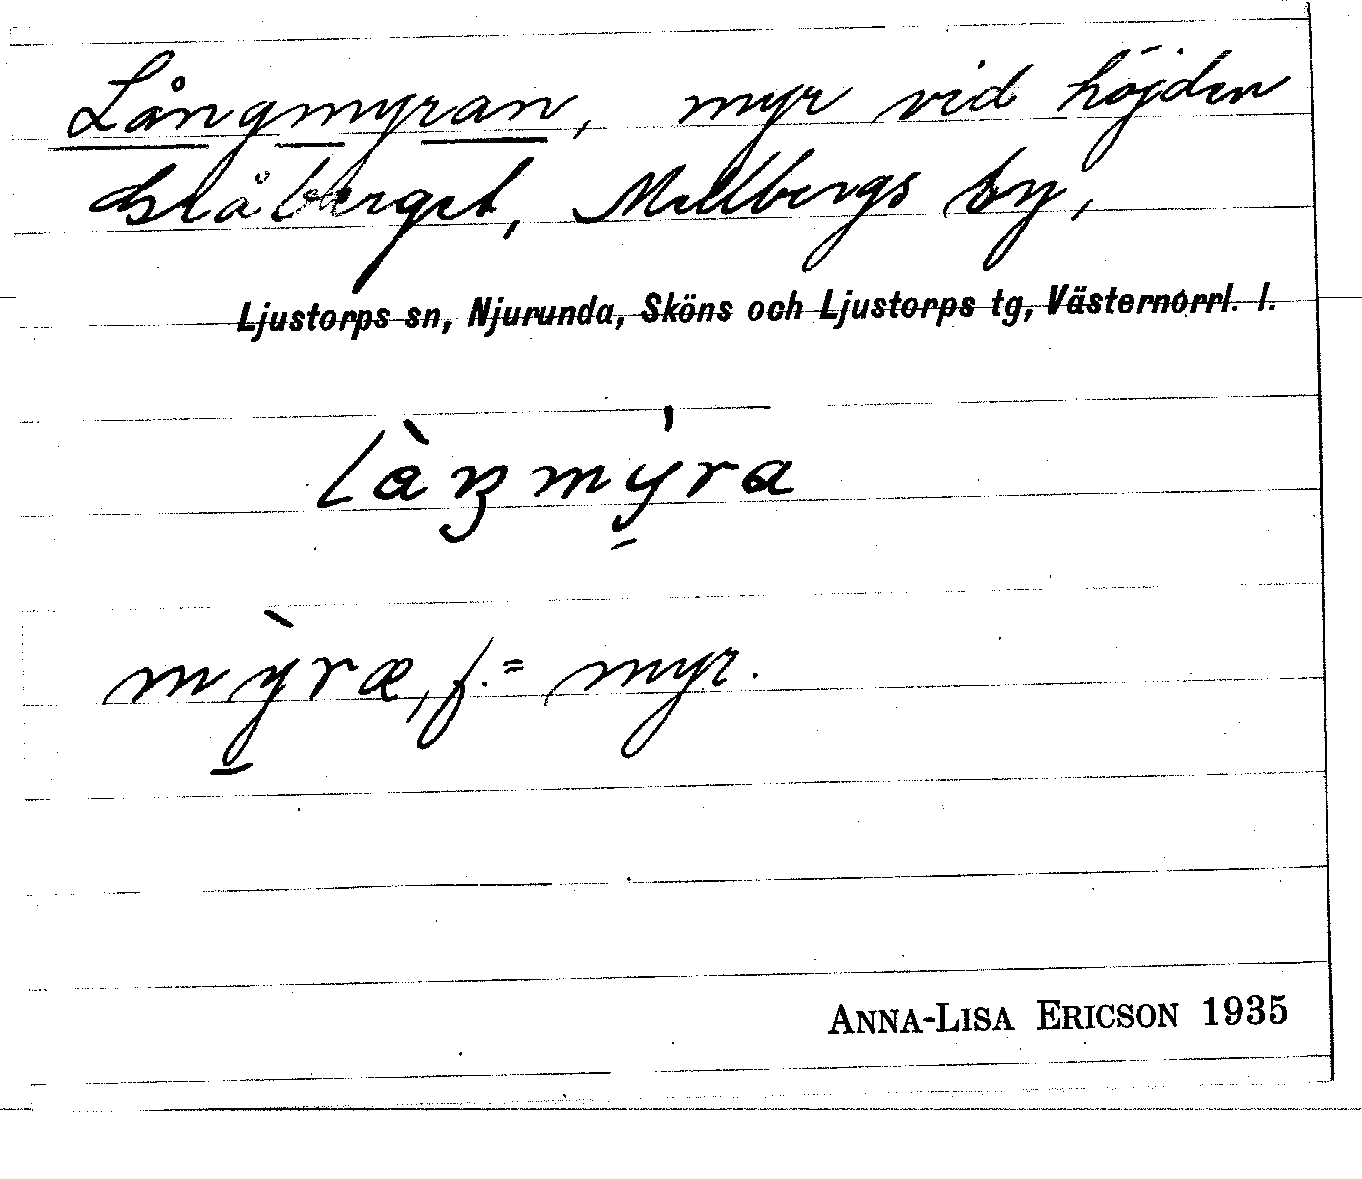 Långmyran, myr vid höjden
Blåberget, Mellbergs by,
Ljustorps sn, Njurunda, Sköns och Ljustorps tg, Västernorrl. l.
làŋmý̱ra
mỳ̱ræ, f. = myr.
ANNA-LISA ERICSON 1935